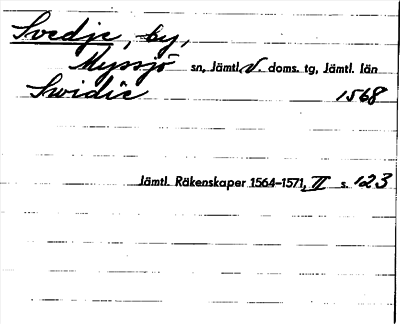 Svedje, by,
Myssjö sn, Jämtl. V. doms. tg, Jämtl. län
Swidie 1568
Jämtl. Räkenskaper 1564-1571, II s. 123